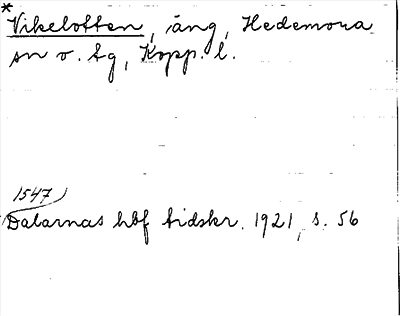 * Vikelotten, äng, Hedemora
sn o. tg, Kopp. l.
1547
Dalarnas hbf tidskr. 1921, s. 56